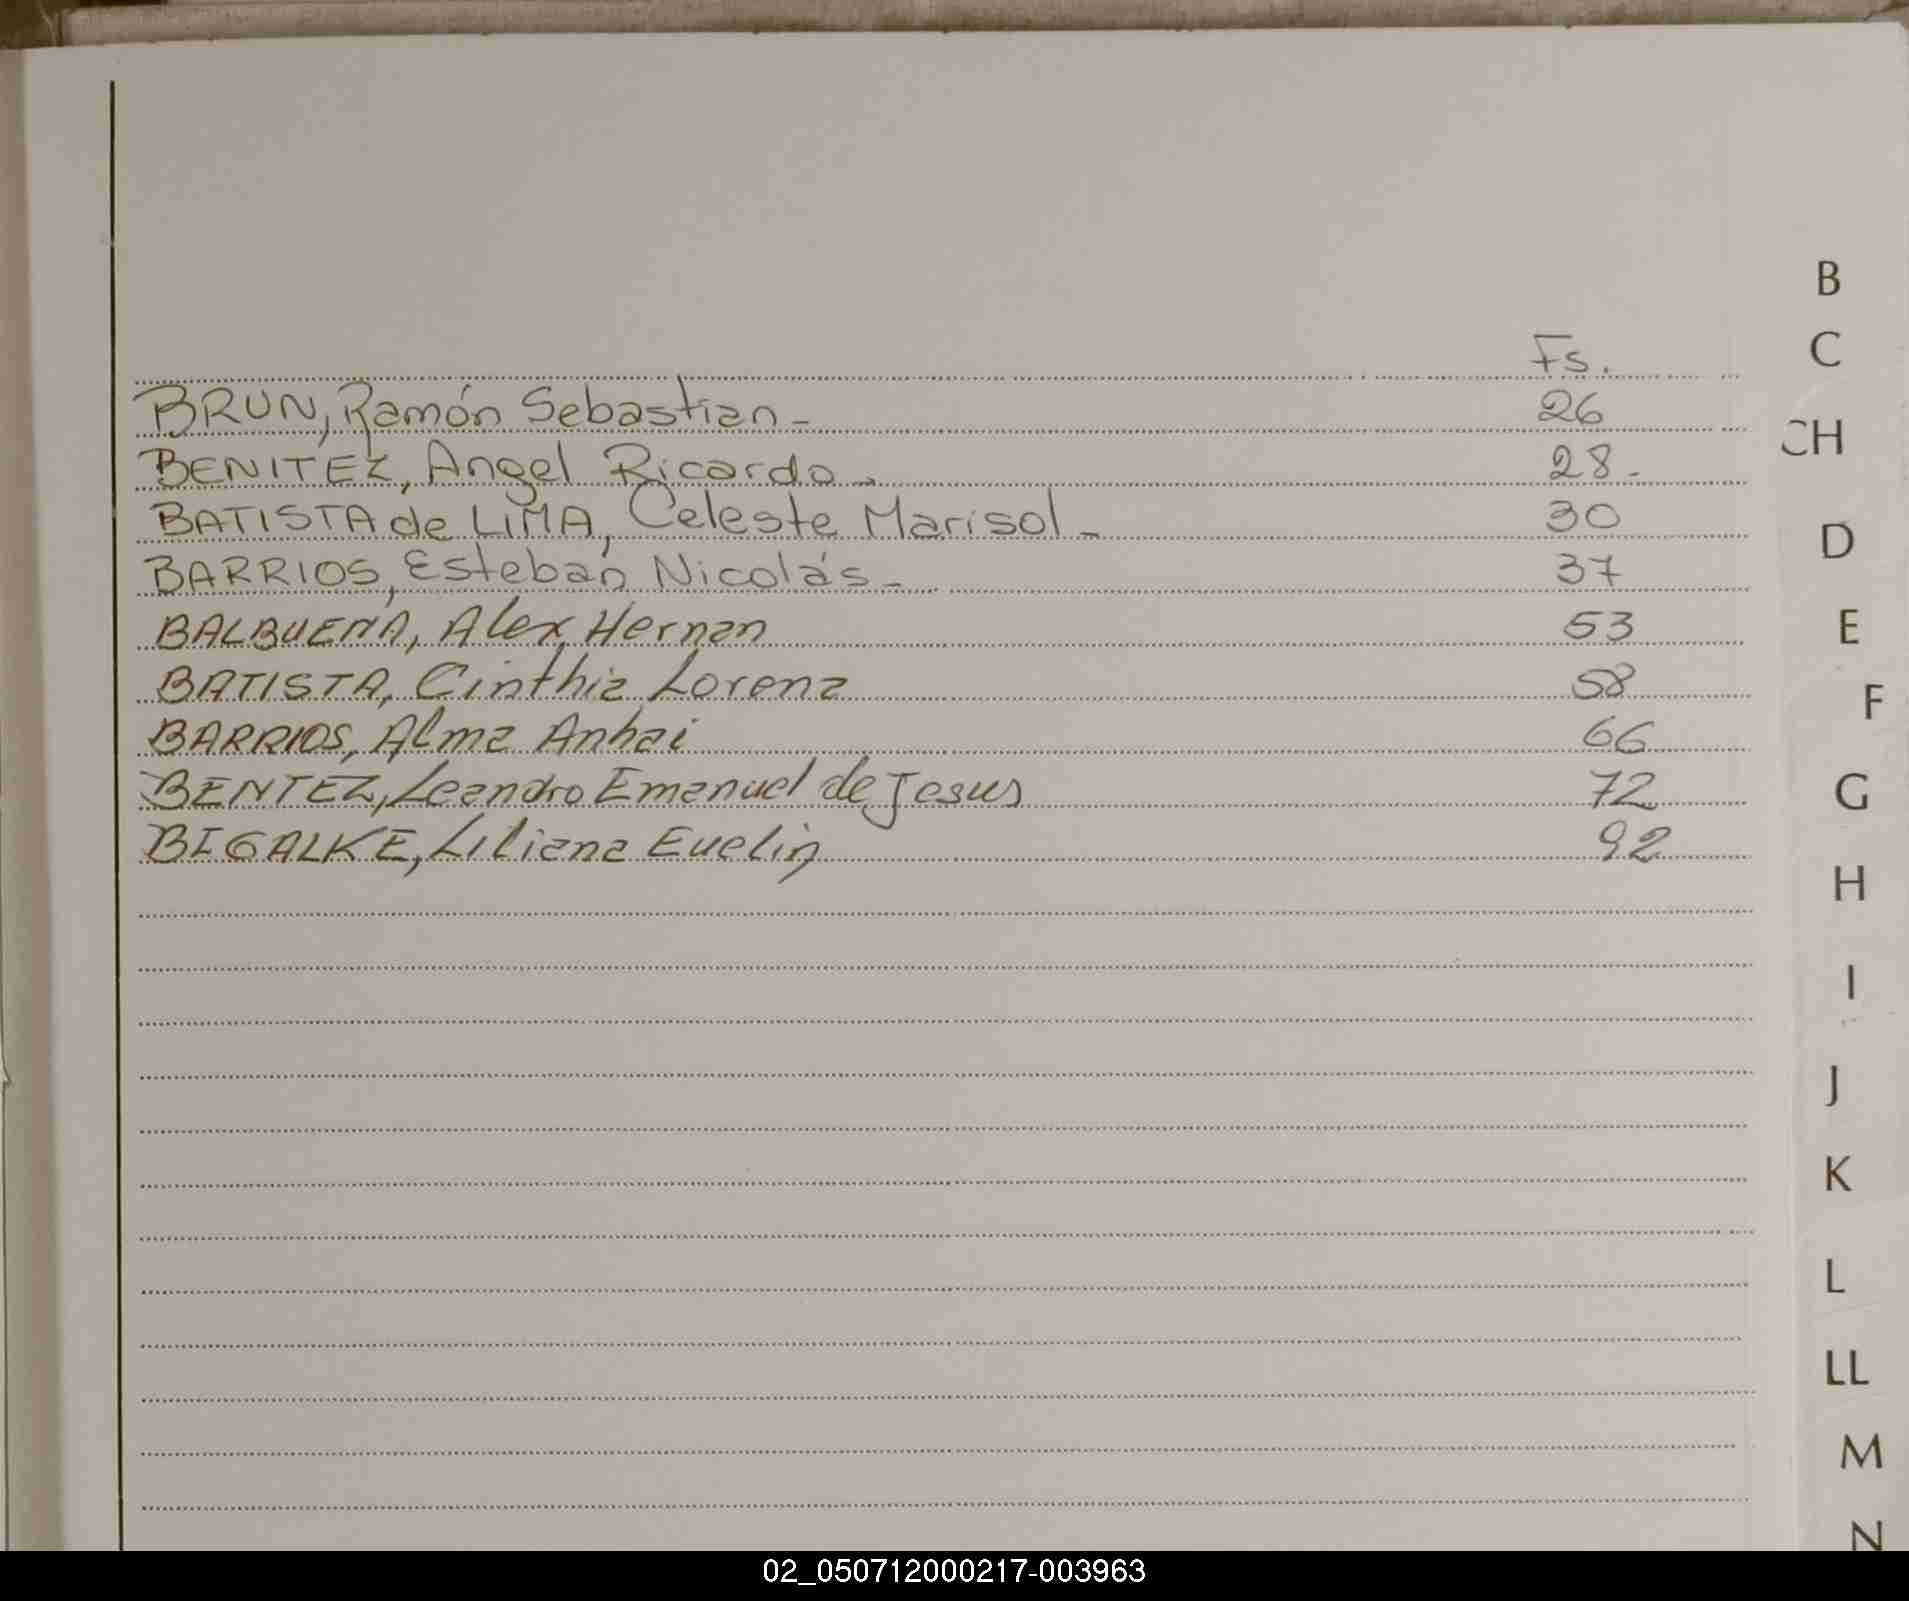 B
C
CH
D
E
F
G
H
I
J
K
L
LL
M
N
Fs.
BRUN, Ramón Sebastian - 26
BENITEZ, Angel Ricardo - 28 -
BATISTA de LIMA, Celeste Marisol - 30
BARRIOS, Esteban Nicolás - 37
BALBUENA, Alex Hernan 53
BATISTA, Cinthia Lorena 58
BARRIOS, Alma Anhai 66
BENTEZ, Leandro Emanuel de Jesus 72
BIGALKE, Liliana Evelin 92
02_050712000217-003963